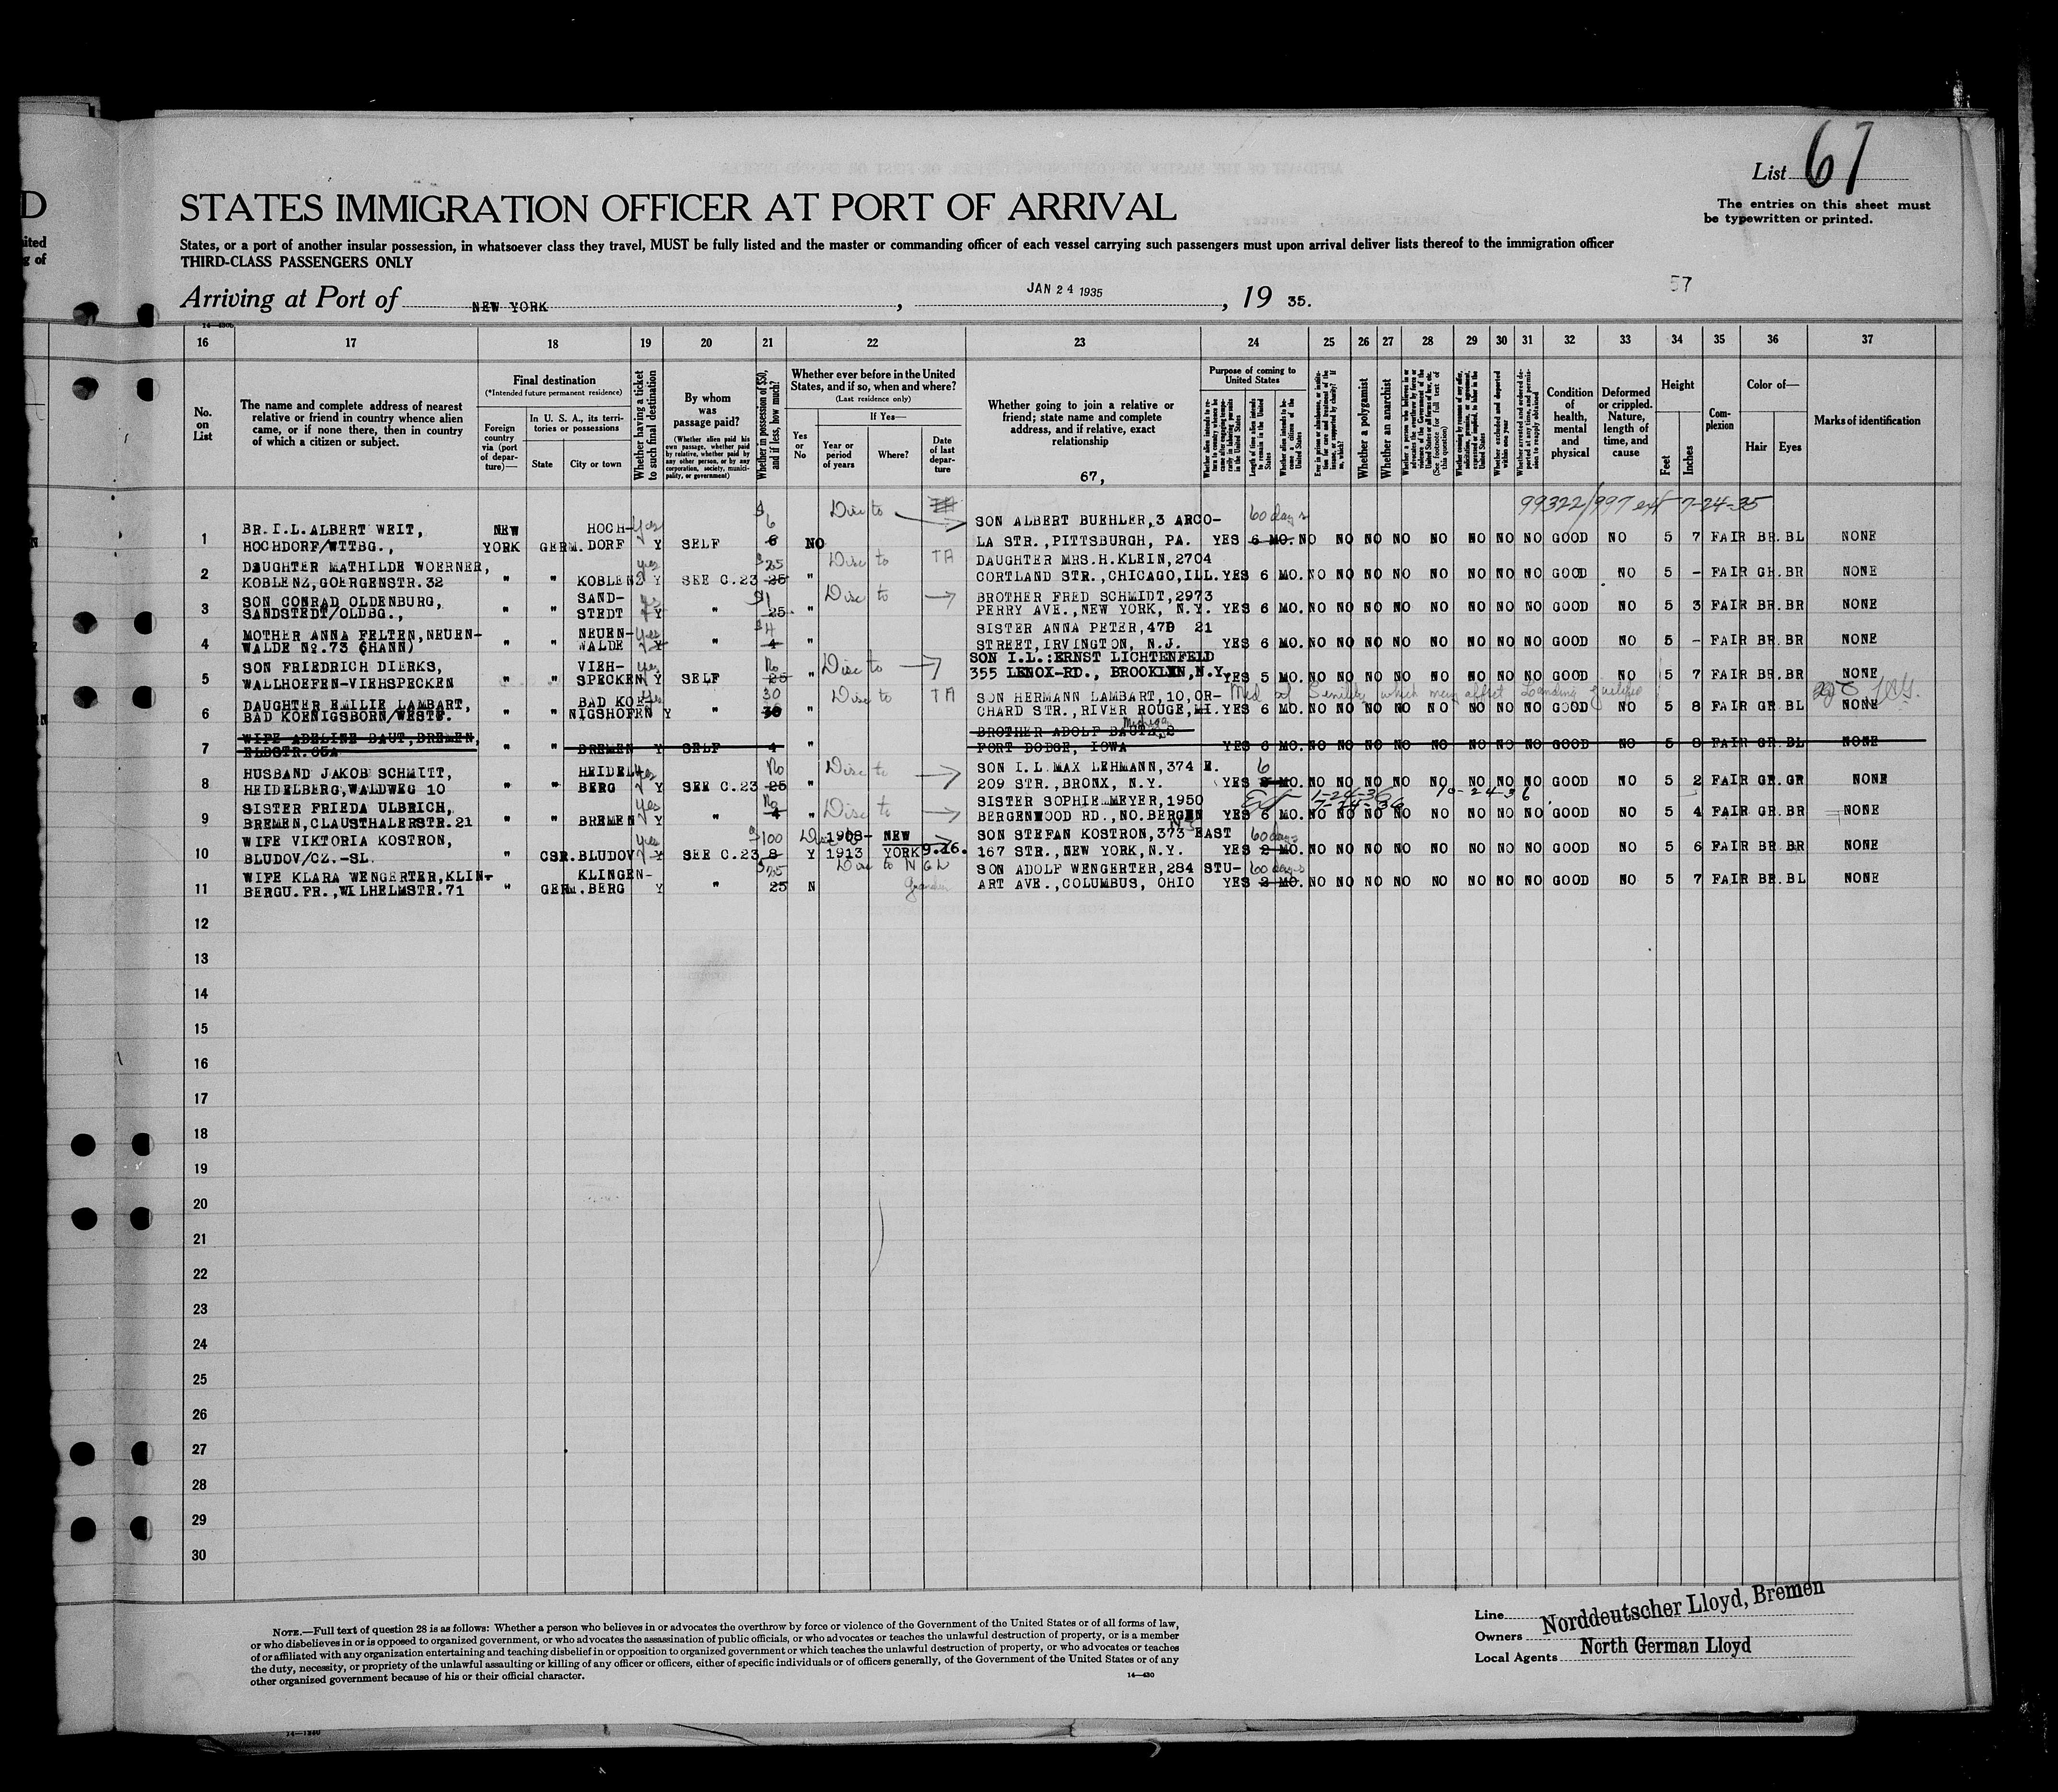 List 67
The entries on this sheet must
be typewritten or printed.
STATES IMMIGRATION OFFICER AT PORT OF ARRIVAL
States, or a port of another insular possession, in whatsoever class they travel, MUST be fully listed and the master or commanding officer of each vessel carrying such passengers must upon arrival deliver lists thereof to the immigration officer
THIRD-CLASS PASSENGERS ONLY
57
Arriving at Port of NEW YORK, JAN 24 1935, 19 35.
16 17 18 19 20 21 22 23 24 25 26 27 28 29 30 31 32 33 34 35 36 37
No. on List
The name and complete address of nearest
relative or friend in country whence alien
came, or if none there, then in country
of which a citizen or subject.
Final destination
(*Intended future permanent residence)
Foreign country via (port of departure)—
In U. S. A., its territories or possessions
State
City or town
Whether having a ticket to such final destination
By whom was passage paid?
(Whether alien paid his own passage, whether paid by relative, whether paid by any other person, or by any corporation, society, municipality, or government)
Whether in possession of $50, and if less, how much?
Whether ever before in the United States, and if so, when and where?
(Last residence only)
Yes or No
If Yes—
Year or period of years
Where?
Date of last departure
Whether going to join a relative or
friend; state name and complete
address, and if relative, exact
relationship
67,
Purpose of coming to United States
Whether a polygamist
Whether an anarchist
Condition of health, mental and physical
Deformed or crippled. Nature, length of time, and cause
Height
Feet
Inches
Complexion
Color of—
Hair
Eyes
Marks of identification
99322/997 ext 7-24-35
1 BR.I.L.ALBERT WEIT, NEW HOCH- yes $6 Disc to SON ALBERT BUEHLER,3 ARCO- 60 days
HOCHDORF/WTTBG., YORK GERM. DORF Y SELF 6 NO LA STR.,PITTSBURGH, PA. YES 6 MO. NO NO NO NO NO NO NO NO GOOD NO 5 7 FAIR BR. BL NONE
2 DAUGHTER MATHILDE WOERNER, yes $25 Disc to TA DAUGHTER MRS.H.KLEIN,2704
KOBLENZ,GOERGENSTR.32 " " KOBLENZ Y SEE C.23 25 " CORTLAND STR.,CHICAGO,ILL. YES 6 MO. NO NO NO NO NO NO NO NO GOOD NO 5 - FAIR GR. BR NONE
3 SON CONRAD OLDENBURG, SAND- $1 Disc to BROTHER FRED SCHMIDT,2973
SANDSTEDT/OLDBG., " " STEDT Y " 25 " PERRY AVE.,NEW YORK, N.Y. YES 6 MO. NO NO NO NO NO NO NO NO GOOD NO 5 3 FAIR BR. BR NONE
4 MOTHER ANNA FELTEN,NEUEN- NEUEN- yes $4 SISTER ANNA PETER,47D 21
WALDE No.73 (HANN) " " WALDE Y " 4 " STREET,IRVINGTON, N.J. YES 6 MO. NO NO NO NO NO NO NO NO GOOD NO 5 - FAIR BR. BR NONE
5 SON FRIEDRICH DIERKS, VIEH- yes No Disc to SON I.L.:ERNST LICHTENFELD
WALLHOEFEN-VIEHSPECKEN " " SPECKEN Y SELF 25 " 355 LENOX-RD., BROOKLYN,N.Y. YES 5 MO. NO NO NO NO NO NO NO NO GOOD NO 5 7 FAIR BR. BR NONE
6 DAUGHTER EMILIE LAMBART, BAD KOE- yes 30 Disc to TA SON HERMANN LAMBART,10,OR- Med of Senility which may affect Landing
BAD KOENIGSBORN/WESTF. " " NIGSHOFEN Y " 30 " CHARD STR.,RIVER ROUGE,MI. YES 6 MO. NO NO NO NO NO NO NO NO GOOD NO 5 8 FAIR GR. BL NONE
Michigan
7 WIFE ADELINE BAUT,BREMEN, BROTHER ADOLF BAUTZ,
ELBSTR.65A " " BREMEN Y SELF 4 " FORT DODGE, IOWA YES 6 MO. NO NO NO NO NO NO NO NO GOOD NO 5 8 FAIR GR. BL NONE
8 HUSBAND JAKOB SCHMITT, HEIDEL- yes No Disc to SON I.L.MAX LEHMANN,374 E. 6
HEIDELBERG,WALDWEG 10 " " BERG Y SEE C.23 25 " 209 STR.,BRONX, N.Y. YES MO. NO NO NO NO NO NO NO NO GOOD NO 5 2 FAIR GR. GR NONE
Ext 1-24-36 7-24-36 10-24-36
9 SISTER FRIEDA ULBRICH, yes No Disc to SISTER SOPHIE MEYER,1950
BREMEN,CLAUSTHALERSTR.21 " " BREMEN Y " 4 " BERGENWOOD RD.,NO.BERGEN YES 6 MO. NO NO NO NO NO NO NO NO GOOD NO 5 4 FAIR GR. BR NONE
N.J.
10 WIFE VIKTORIA KOSTRON, yes $100 1908- NEW SON STEFAN KOSTRON,373 EAST 60 days
BLUDOV/CZ.-SL. " CSR. BLUDOV Y SEE C.23 8 Y 1913 YORK 9.26. 167 STR.,NEW YORK,N.Y. YES 2 MO. NO NO NO NO NO NO NO NO GOOD NO 5 6 FAIR BR. BR NONE
11 WIFE KLARA WENGERTER,KLIN- KLINGEN- $25 Disc to NGL SON ADOLF WENGERTER,284 STU- 60 days
BERGU.FR.,WILHELMSTR.71 " GERM. BERG Y " 25 N ART AVE.,COLUMBUS, OHIO YES 2 MO. NO NO NO NO NO NO NO NO GOOD NO 5 7 FAIR BR. BL NONE
12
13
14
15
16
17
18
19
20
21
22
23
24
25
26
27
28
29
30
NOTE.—Full text of question 28 is as follows: Whether a person who believes in or advocates the overthrow by force or violence of the Government of the United States or of all forms of law,
or who disbelieves in or is opposed to organized government, or who advocates the assassination of public officials, or who advocates or teaches the unlawful destruction of property, or is a member
of or affiliated with any organization entertaining and teaching disbelief in or opposition to organized government or which teaches the unlawful destruction of property, or who advocates or teaches
the duty, necessity, or propriety of the unlawful assaulting or killing of any officer or officers, either of specific individuals or of officers generally, of the Government of the United States or of any
other organized government because of his or their official character.
14—430
Line Norddeutscher Lloyd, Bremen
Owners
Local Agents North German Lloyd